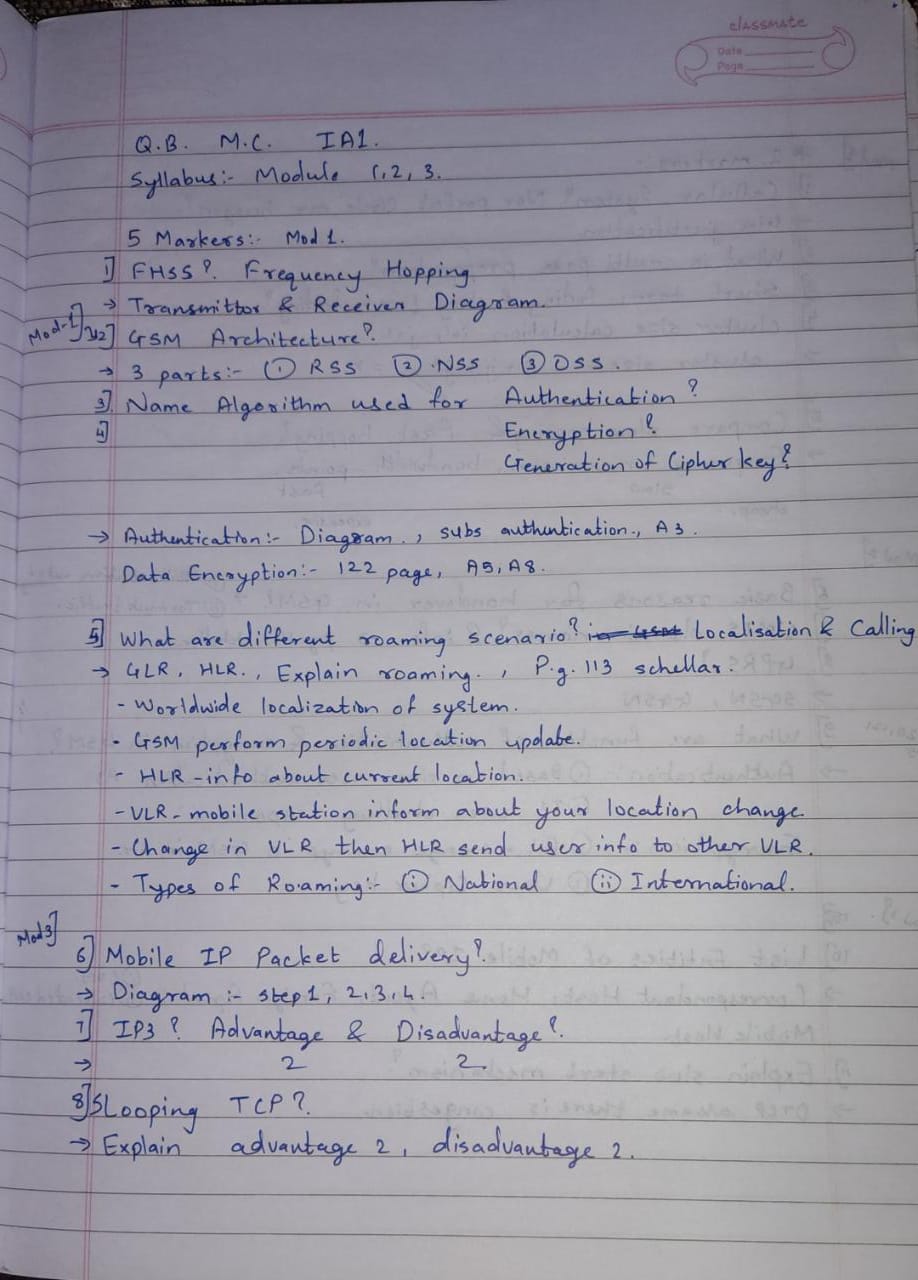 classmate
Date
Page
Q.B. M.C. IA1.
Syllabus:- Module 1,2,3.
5 Markers:- Mod 1.
1] FHSS?. Frequency Hopping
→ Transmittor & Receiver Diagram.
Mod-1]
2] GSM Architecture?
→ 3 parts:- ① RSS ② NSS ③ OSS.
3] Name Algorithm used for Authentication?
4] Encryption?
Generation of Cipher key?
→ Authentication:- Diagram., subs authentication., A3.
Data Encryption:- 122 page, A5, A8.
5] What are different roaming scenario? in GSM Localisation & Calling
→ GLR, HLR., Explain roaming., P.g. 113 schellar.
- Worldwide localization of system.
- GSM perform periodic location update.
- HLR - info about current location.
- VLR - mobile station inform about your location change.
- Change in VLR then HLR send user info to other VLR.
- Types of Roaming:- ⓘ National ⓘⓘ International.
Mod3]
6] Mobile IP Packet delivery?.
→ Diagram :- step 1, 2, 3, 4.
7] IP3? Advantage & Disadvantage?.
→ 2 2.
8] SLooping TCP?.
→ Explain advantage 2, disadvantage 2.